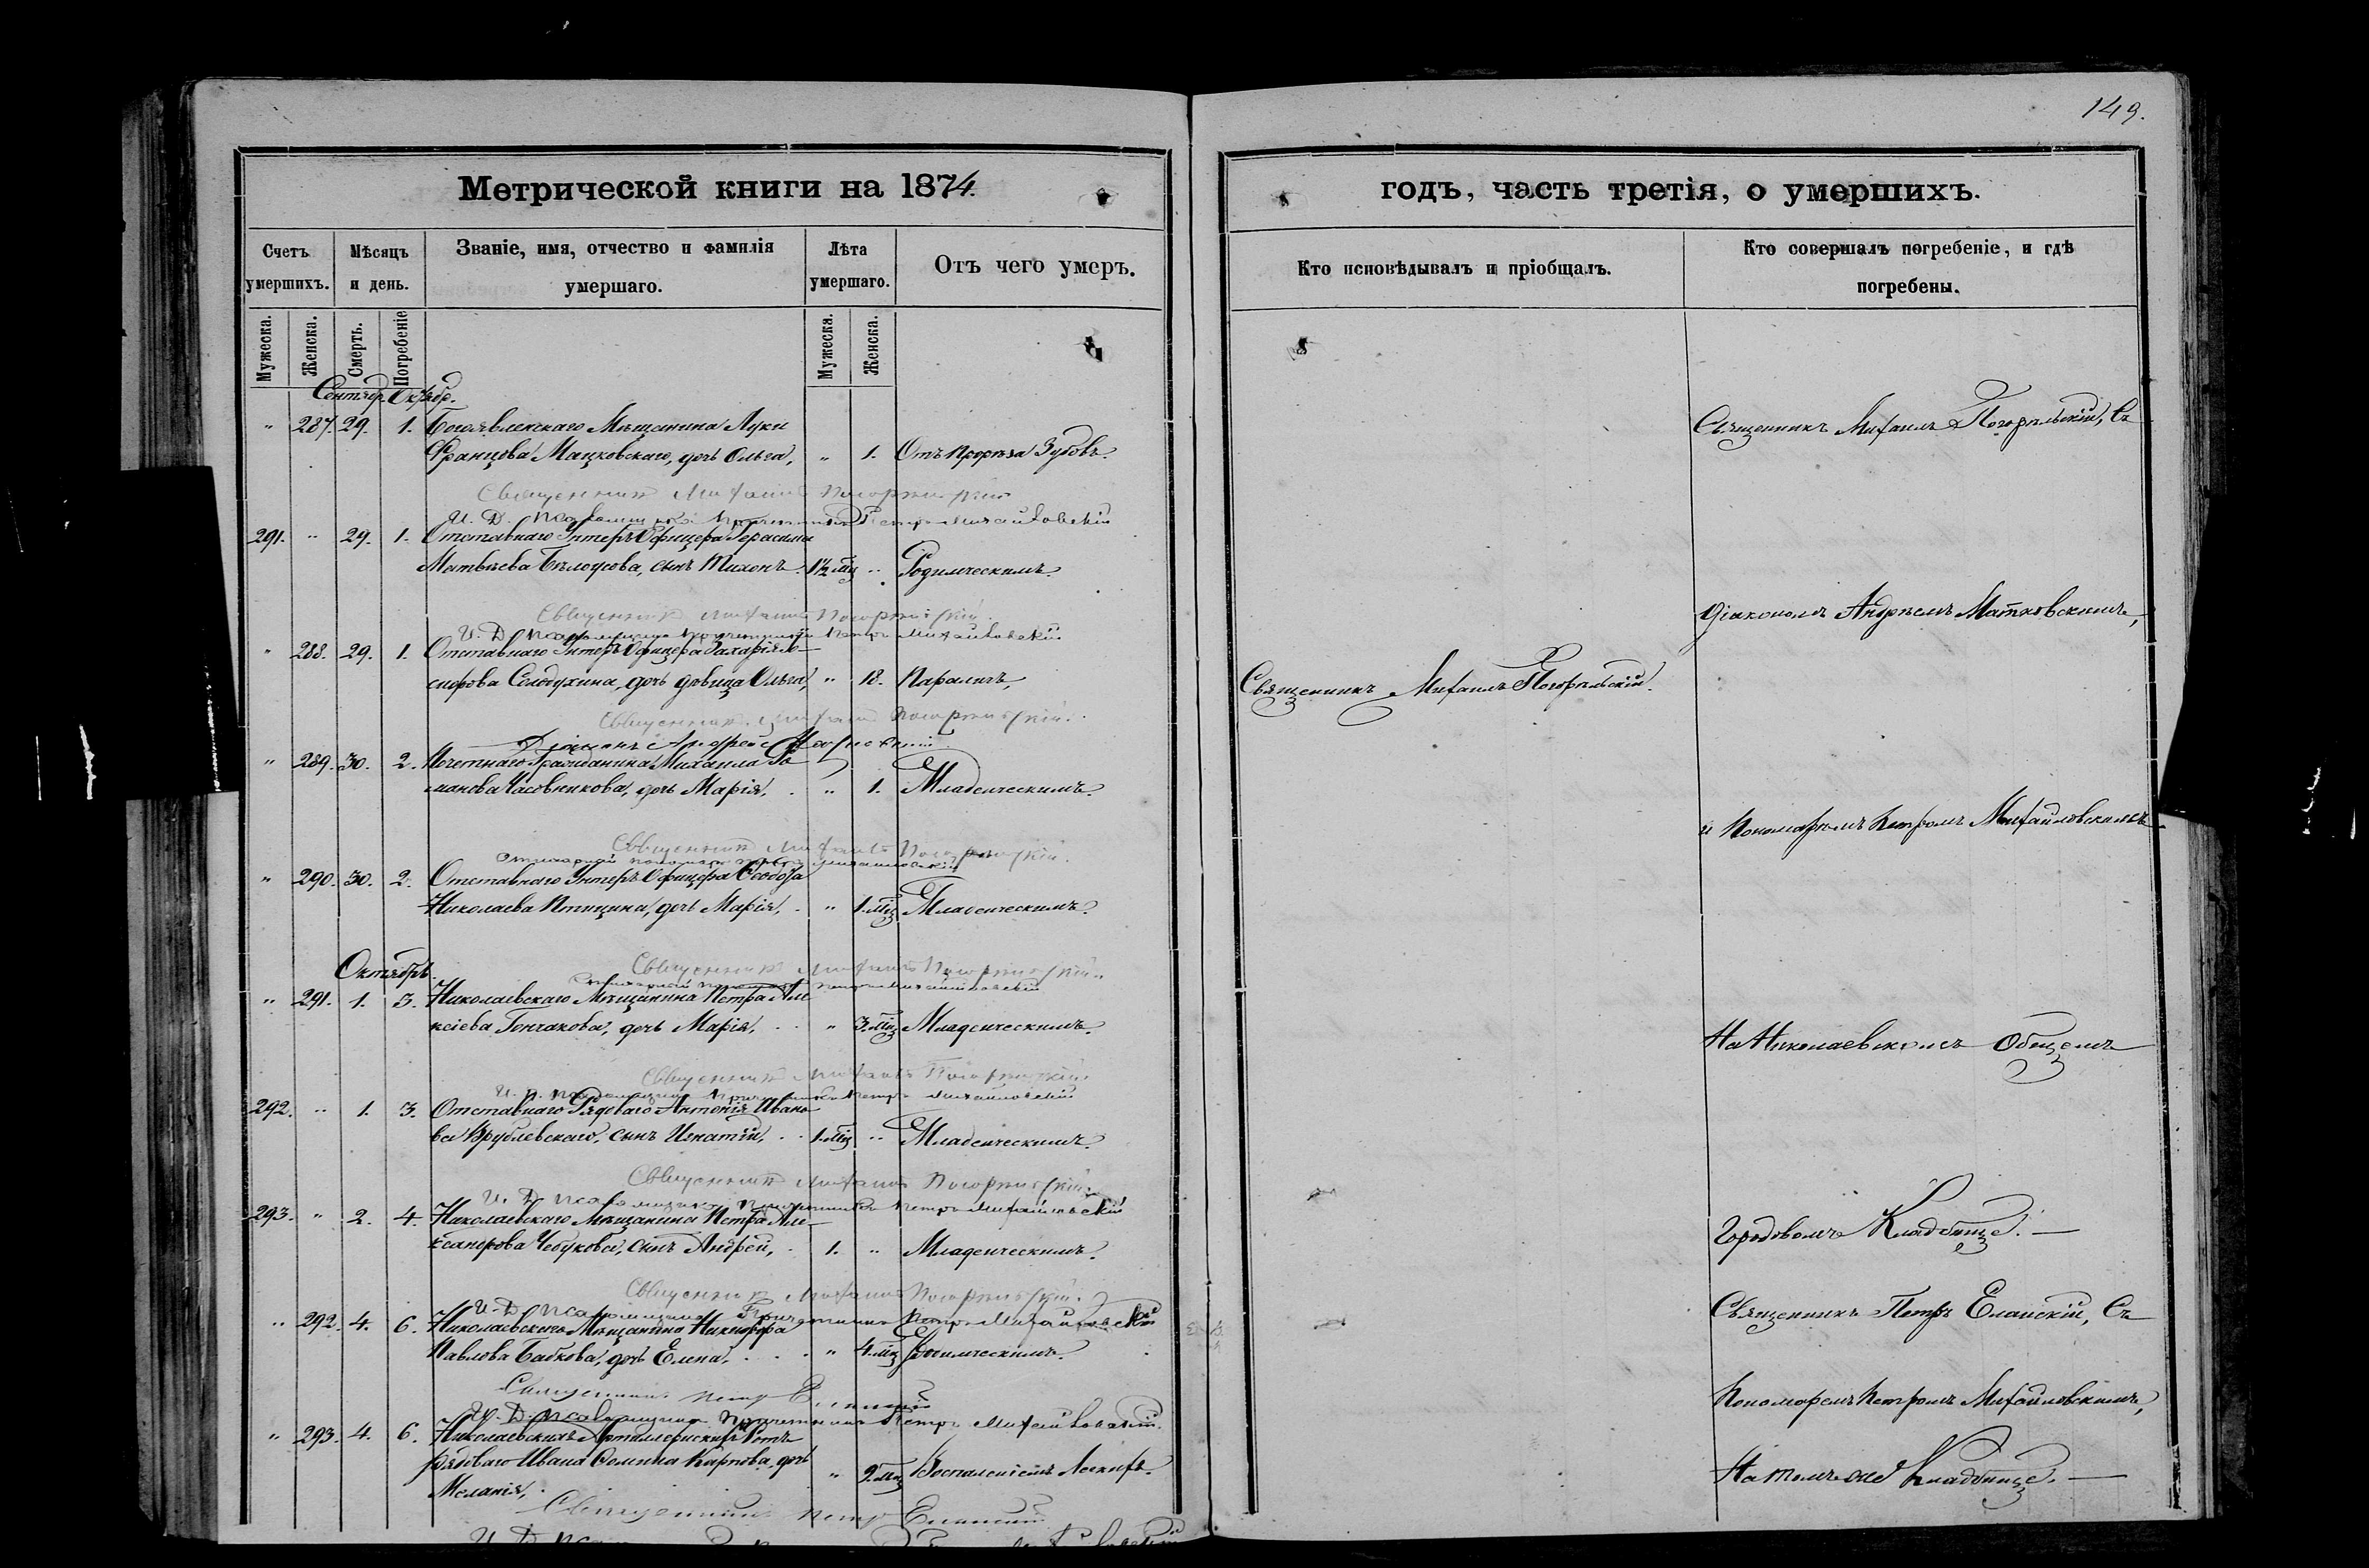 149.
Метрической книги на 1874.
годъ, часть третія, о умершихъ.
Счетъ умершихъ.
Мѣсяцъ и день.
Званіе, имя, отчество и фамилія умершаго.
Лѣта умершаго.
Отъ чего умеръ.
Кто исповѣдывалъ и пріобщалъ.
Кто совершалъ погребеніе, и гдѣ погребены.
Мужеска. Женска. Смерть. Погребеніе Мужеска. Женска.
Сентябр. Октябр.
" 287. 29. 1. Богоявленскаго Мѣщанина Луки
Францова Мацковскаго, дочь Ольга, " 1. Отъ прорѣза Зубовъ.
Священникъ Михаилъ Погорѣльскій, Съ
Священникъ Михаилъ
И. Д. Псаломщика Причетникъ Петръ Михайловскій
291. " 29. 1. Отставнаго Унтеръ Офицера Герасима
Матвѣева Бѣлоусова, сынъ Тихонъ. 1½ мц " Родимческимъ.
Священникъ Михаилъ
Діакономъ Андреемъ Матковскимъ,
И. Д. Псаломщика Причетникъ Петръ Михайловскій
" 288. 29. 1. Отставнаго Унтеръ Офицера Захарія
дочь дѣвица Ольга, " 18. Параличъ,
Священникъ Михаилъ Погорѣльскій.
Священникъ Михаилъ
Діаконъ Андрей
" 289. 30. 2. Почетнаго Гражданина Михаила Ро
манова Часовникова, дочь Марія, " 1. Младенческимъ.
и Пономаремъ Петромъ Михайловскимъ
Священникъ Михаилъ
пономарь Петръ Михайловскій
" 290. 30. 2. Отставнаго Унтеръ Офицера Ѳеодора
Николаева Птицина, дочь Марія, " 1. мц Младенческимъ.
Священникъ Михаилъ
Октябрь.
Петръ Михайловскій
" 291. 1. 3. Николаевскаго Мѣщанина Петра Але
ксіева Гончакова, дочь Марія, " 3. мц Младенческимъ.
На Николаевскомъ Общемъ
Священникъ Михаилъ
И. Д. Псаломщика Причетникъ Петръ Михайловскій
292. " 1. 3. Отставнаго Рядоваго Антонія Ивано
ва Врублевскаго, сынъ Игнатій, 1. мц " Младенческимъ.
Священникъ Михаилъ
И. Д. Псаломщика Причетникъ Петръ Михайловскій
293. " 2. 4. Николаевскаго Мѣщанина Петра Але
ксандрова Чебукова, сынъ Андрей, 1. " Младенческимъ.
Городовомъ Кладбище.
Священникъ Михаилъ
И. Д. Псаломщика Причетникъ Петръ Михайловскій
" 292. 4. 6. Николаевскаго Мѣщанина Никифора
Павлова Бабкова, дочь Елена, " 4. мц Родимческимъ.
Священникъ Петръ Еланскій, Съ
Священникъ Петръ
И. Д. Псаломщика Причетникъ Петръ Михайловскій
Пономаремъ Петромъ Михайловскимъ,
" 293. 4. 6. Николаевскихъ Артиллерискихъ Ротъ
рядоваго Ивана Карпова, дочь " 9. мц Воспаленіемъ Легкихъ.
Меланія,
На томъ же Кладбище.
Священникъ Петръ Еланскій